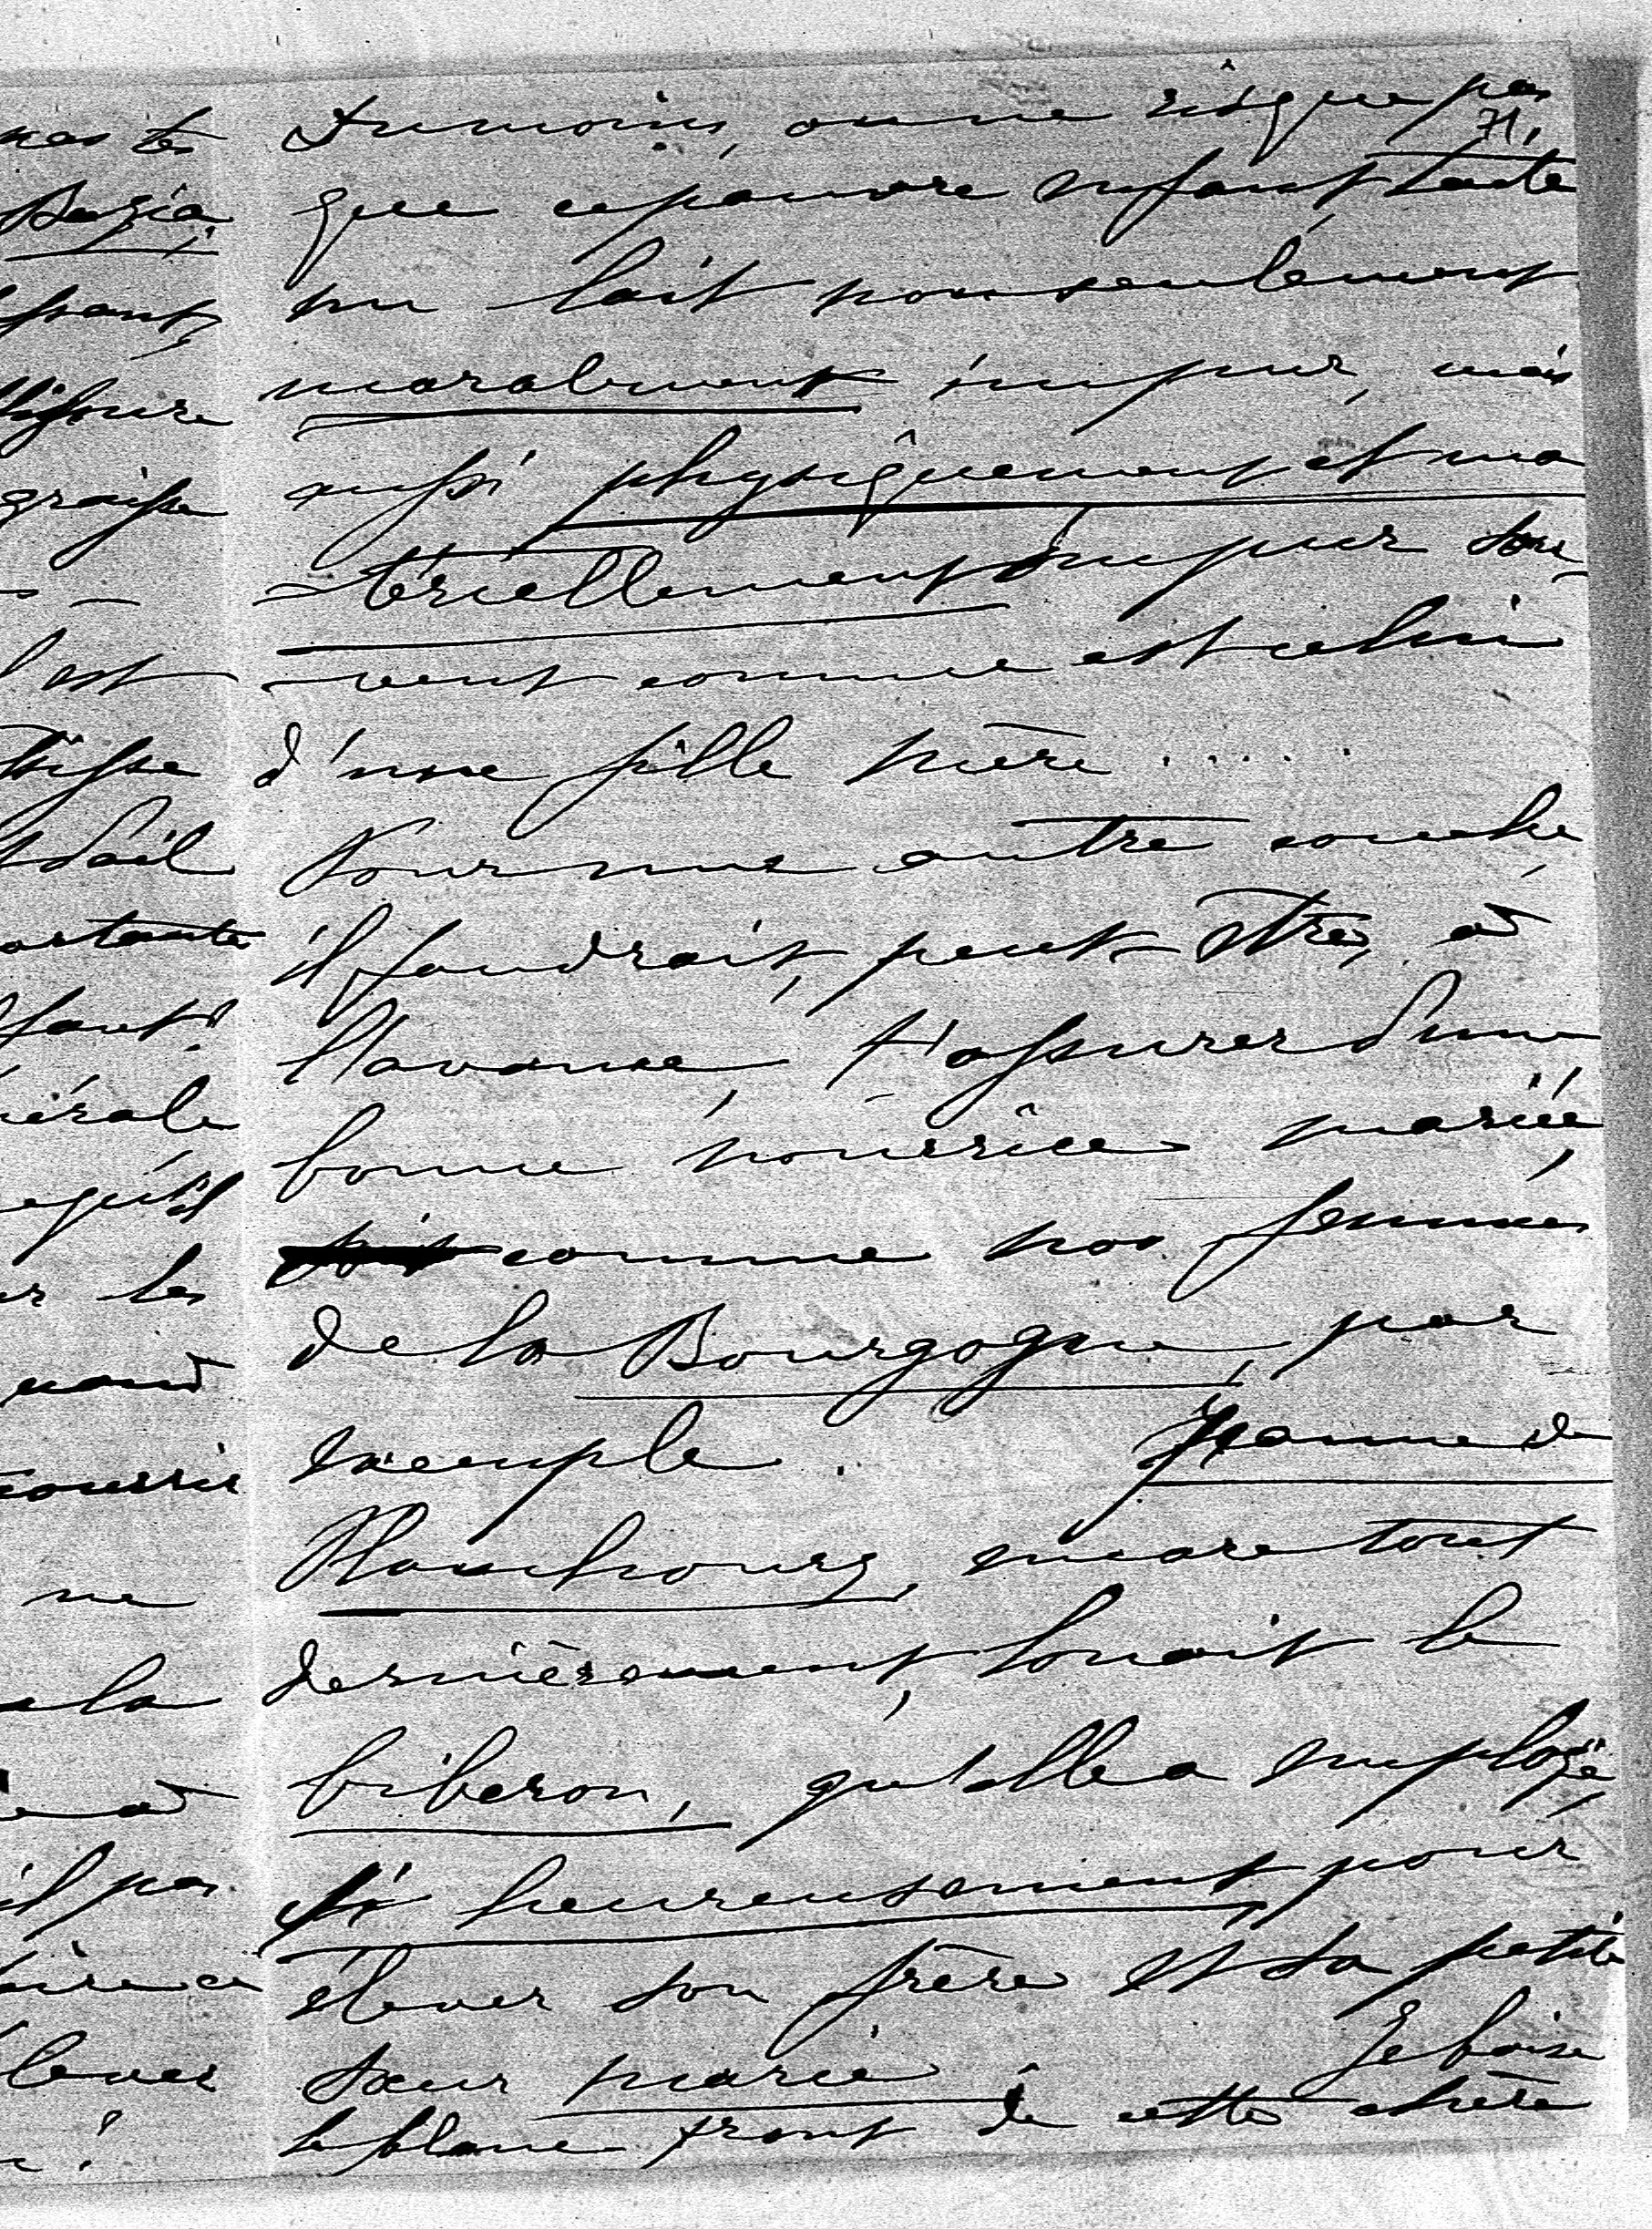 Du moins, on ne risque pas
71,
que ce pauvre enfant tète
un lait non seulement
moralement impur, mais
aussi physiquement et ma
-tériellement impur sou-
-vent comme est celui
d'une fille mère .....
Pour une autre couche,
il faudrait, peut-être, à
l'avance, t'assurer d'une
bonne nourrice mariée,
comme nos femmes
de la Bourgogne, par
exemple. Jeanne de
encore tout
dernièrement, louait le
biberon, qu'elle a employé
si heureusement, pour
élever son frère et sa petite
sœur Marie. Je baise
le blanc front de cette chère
nérale
graisse
l'est
portante
quand
nourrir
ne
la
il pas